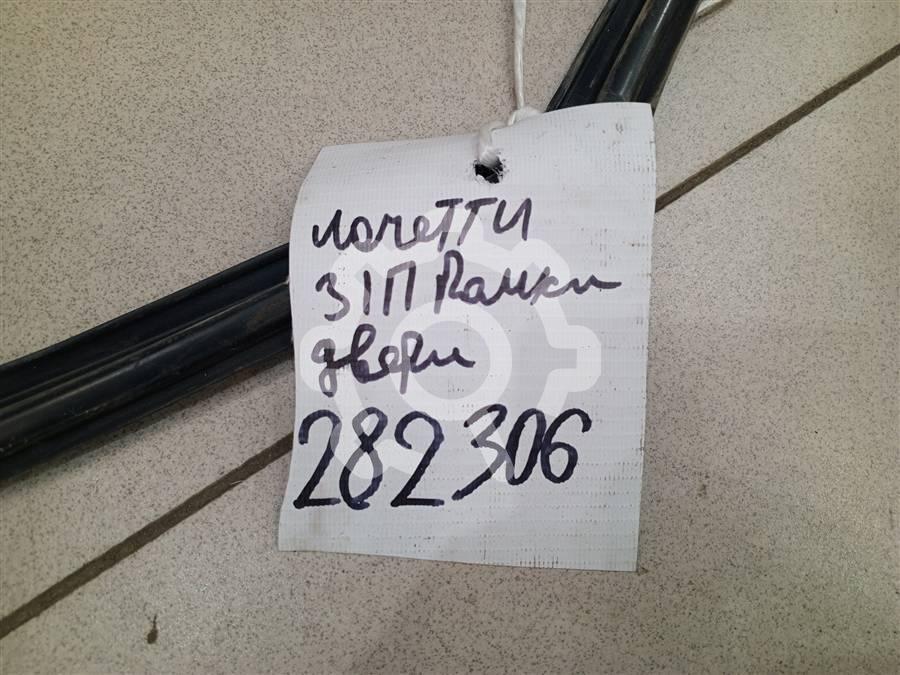 лачетти
З/П Рамки
двери
282306